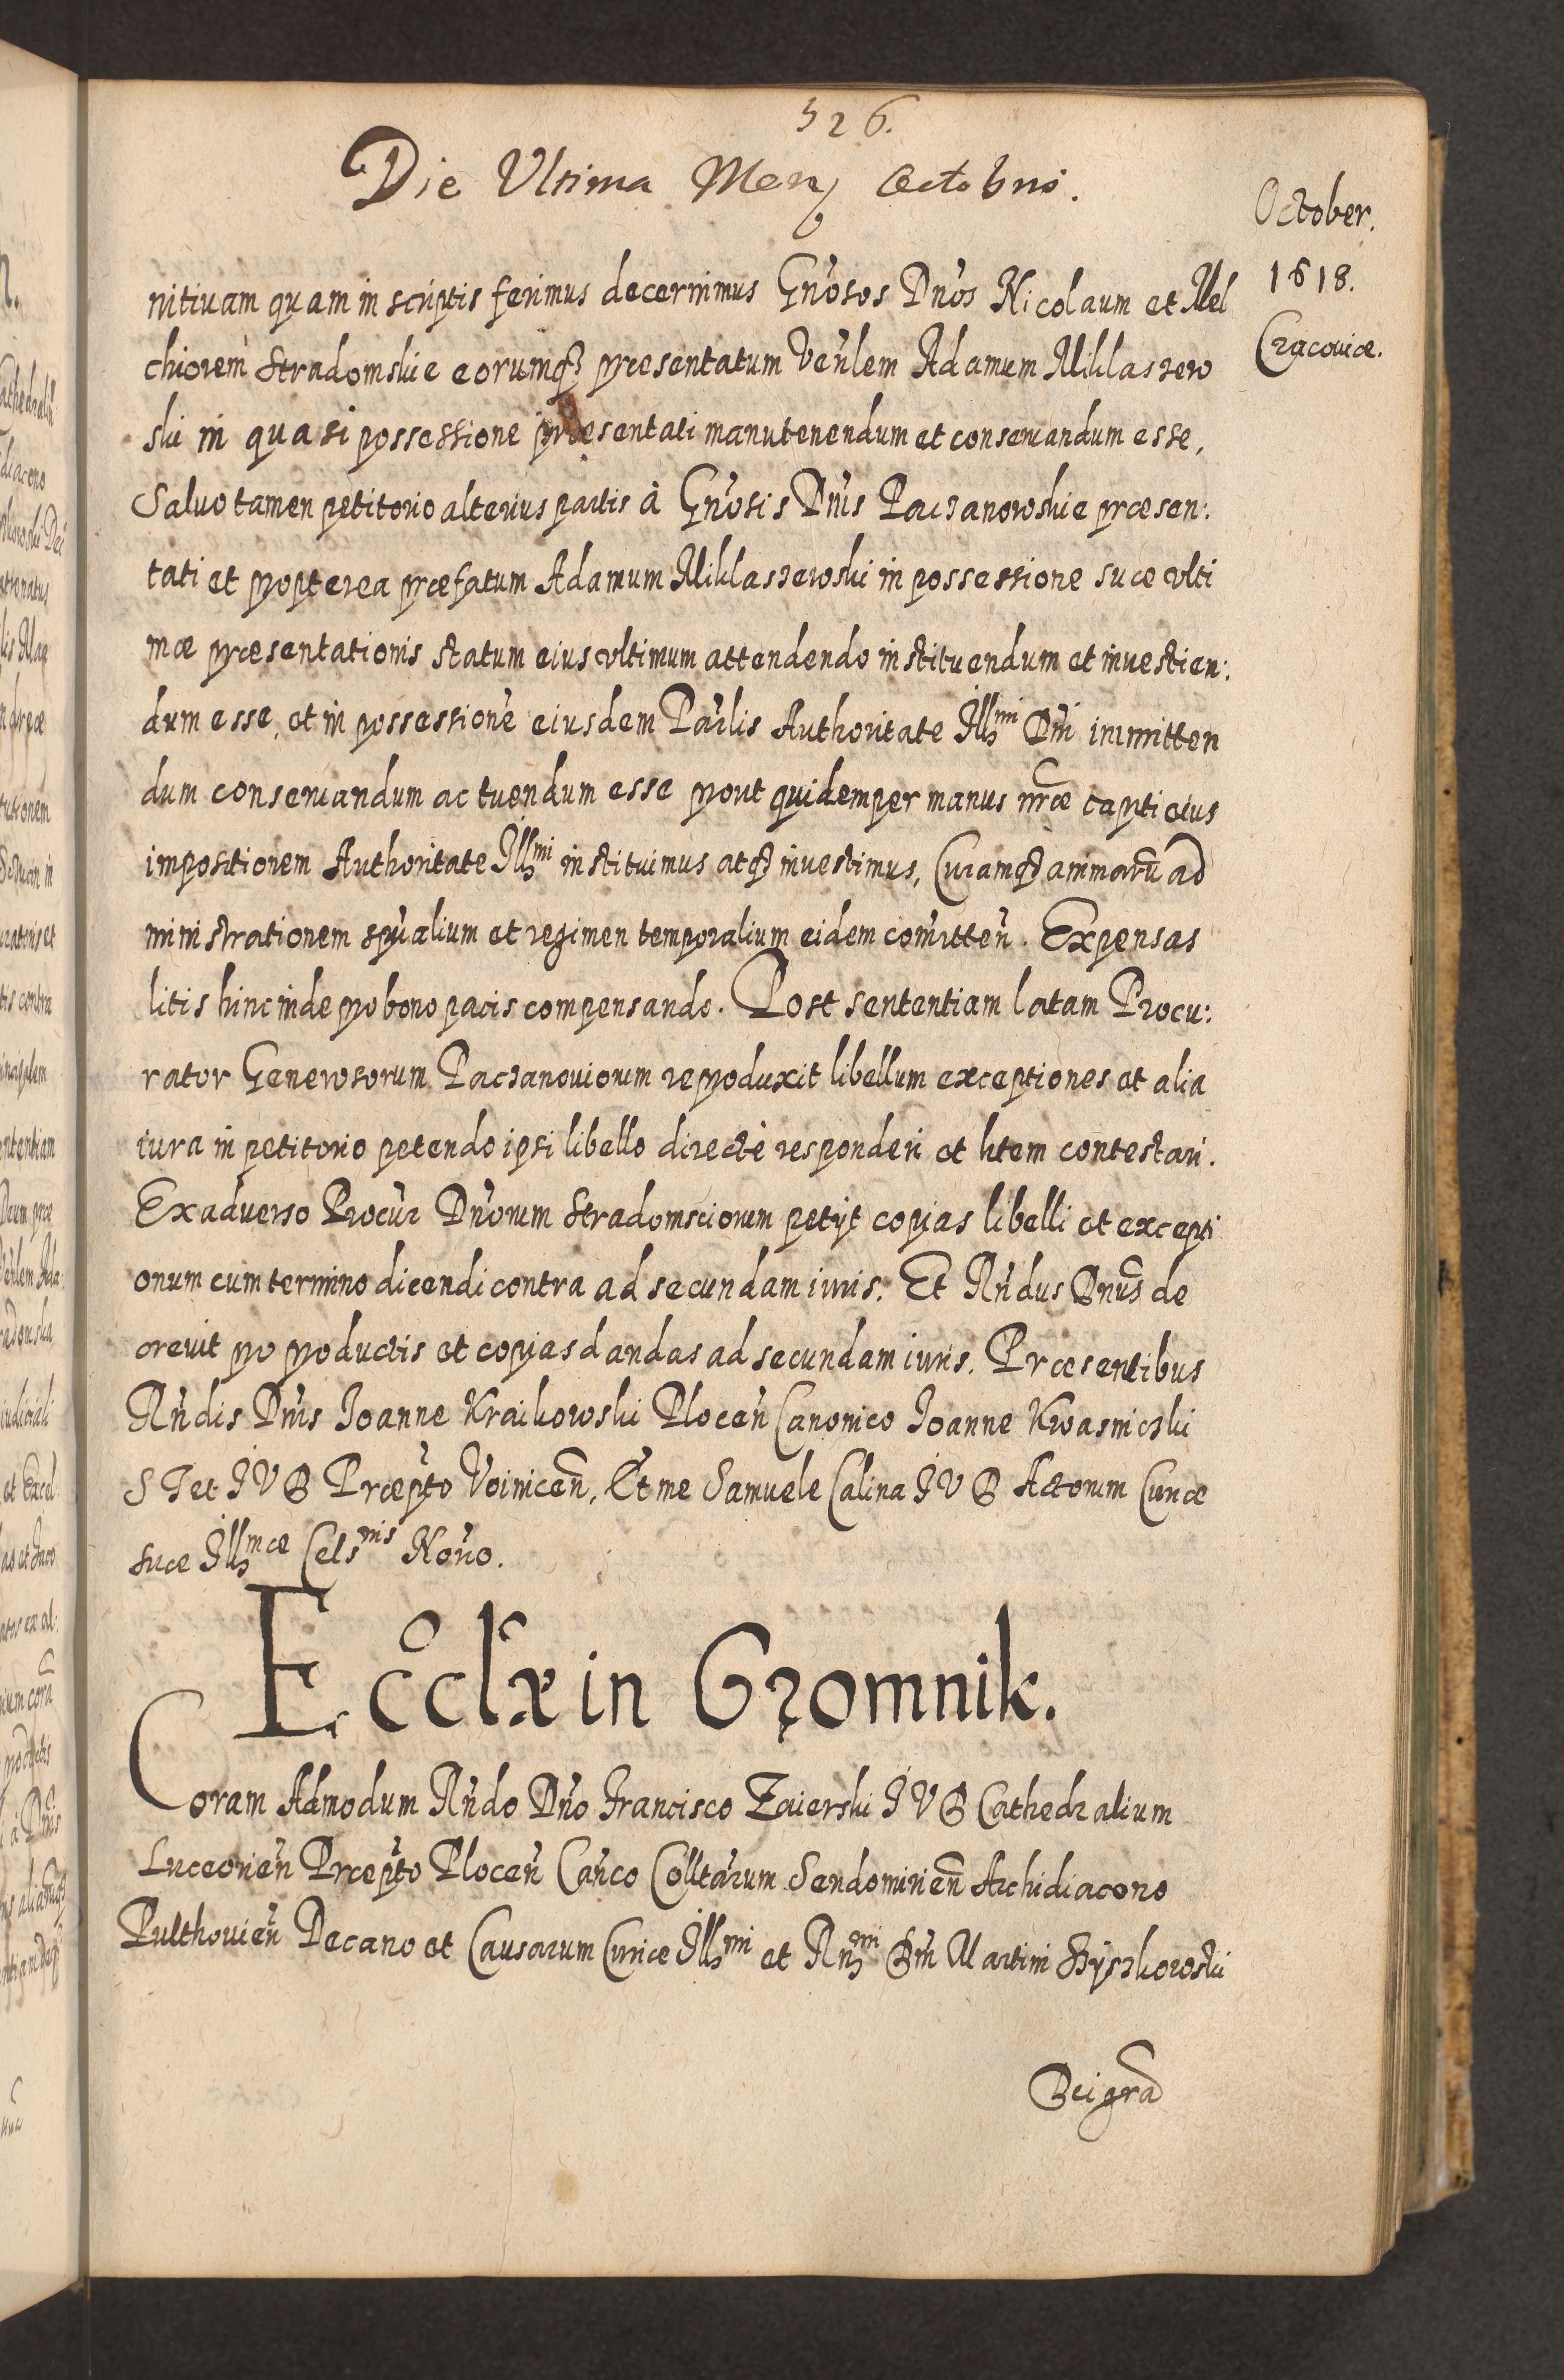 526.
Die Ultima Mens Octobris.
October.
1618.
Cracoviæ.
nitivam quam in scriptis ferimus decernimus Gnosos Dnos Nicolaum et Mel
chiorem Stradomskie eorumq præsentatum Venlem Adamum Miklaszew
ski in quasi possessione præsentati manutenendum et conservandum esse,
Salvo tamen petitorio alterius partis à Gnosis Dnis Paczanowskie præsen:
tati et propterea præfatum Adamum Miklaszewski in possessione suæ ulti
mæ præsentationis statum eius ultimum attendendo instituendum et investien:
dum esse, et in possessione eiusdem Parlis Authoritate Illmi Dni inmitten
dum conservandum ac tuendum esse prout quidem per manus nræ capiti eius
impositionem Authoritate Illmi instituimus atq investimus, Curamq animarū ad
ministrationem spualium et regimen temporalium eidem comitten. Expensas
litis hinc inde pro bono pacis compensando. Post sententiam latam Procu:
rator Generosorum Paczanoviorum reproduxit libellum exceptiones et alia
iura in petitorio petendo ipsi libello directè responderi et litem contestari.
Ex adverso Procur Dnorum Stradomsciorum petyt copias libelli et excepti
onum cum termino dicendi contra ad secundam iuris. Et Rndus Dnus de
crevit pro productis et copias dandas ad secundam iuris. Præsentibus
Rndis Dnis Joanne Kraikowski Plocen Canonico Joanne Kwasniczki
S T et J V D Præpto Voinicen, Et me Samuele Calina J V D Actorum Curiæ
suæ Illmæ Celsnis Noto.
Eccliæ in Gromnik.
Coram Admodum Rndo Dno Francisco Zaierski J V D Cathedralium
Luceorien Præpto Plocen Canco Colltarum Sendomirien Archidiacono
Pulthovien Decano et Causarum Curiæ Illmi et Rnmi Dni Martini Szyszkowski
Dei gra